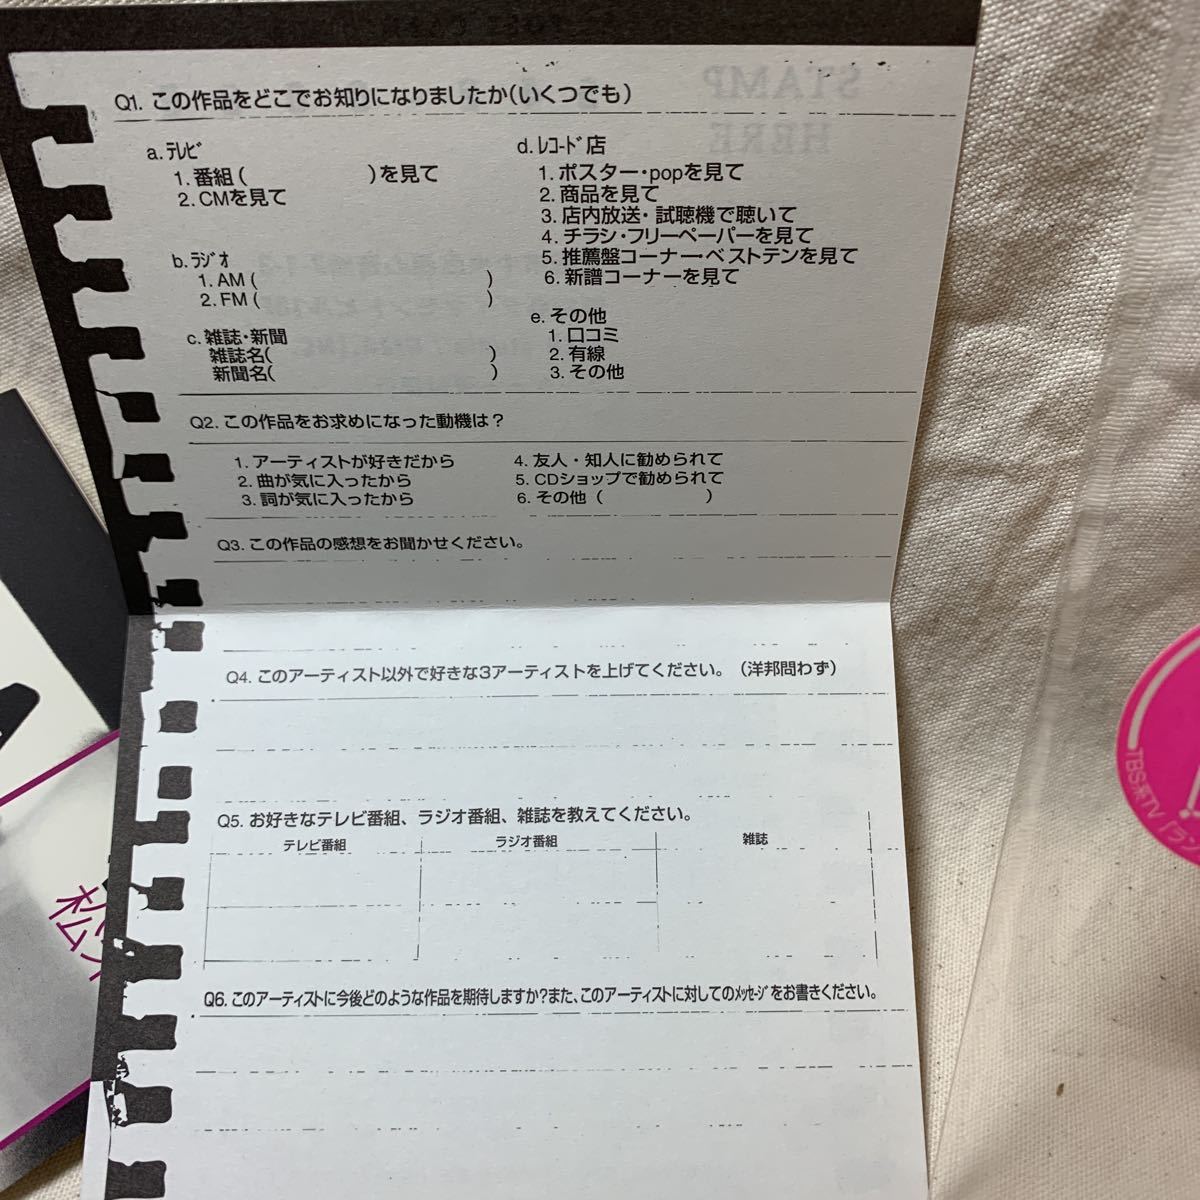 STAMP
HERE
Q1. この作品をどこでお知りになりましたか(いくつでも)
a. ﾃﾚﾋﾞ
1. 番組(　　　　　)を見て
2. CMを見て
b. ﾗｼﾞｵ
1. AM (　　　　　)
2. FM (　　　　　)
c. 雑誌・新聞
雑誌名(　　　　　)
新聞名(　　　　　)
d. ﾚｺｰﾄﾞ店
1. ポスター・popを見て
2. 商品を見て
3. 店内放送・試聴機で聴いて
4. チラシ・フリーペーパーを見て
5. 推薦盤コーナー・ベストテンを見て
6. 新譜コーナーを見て
e. その他
1. 口コミ
2. 有線
3. その他
Q2. この作品をお求めになった動機は？
1. アーティストが好きだから
2. 曲が気に入ったから
3. 詞が気に入ったから
4. 友人・知人に勧められて
5. CDショップで勧められて
6. その他 (　　　　　)
Q3. この作品の感想をお聞かせください。
Q4. このアーティスト以外で好きな3アーティストを上げてください。（洋邦問わず）
Q5. お好きなテレビ番組、ラジオ番組、雑誌を教えてください。
テレビ番組　ラジオ番組　雑誌
Q6. このアーティストに今後どのような作品を期待しますか?また、このアーティストに対してのﾒｯｾｰｼﾞをお書きください。
松
TBS系TV「ラン